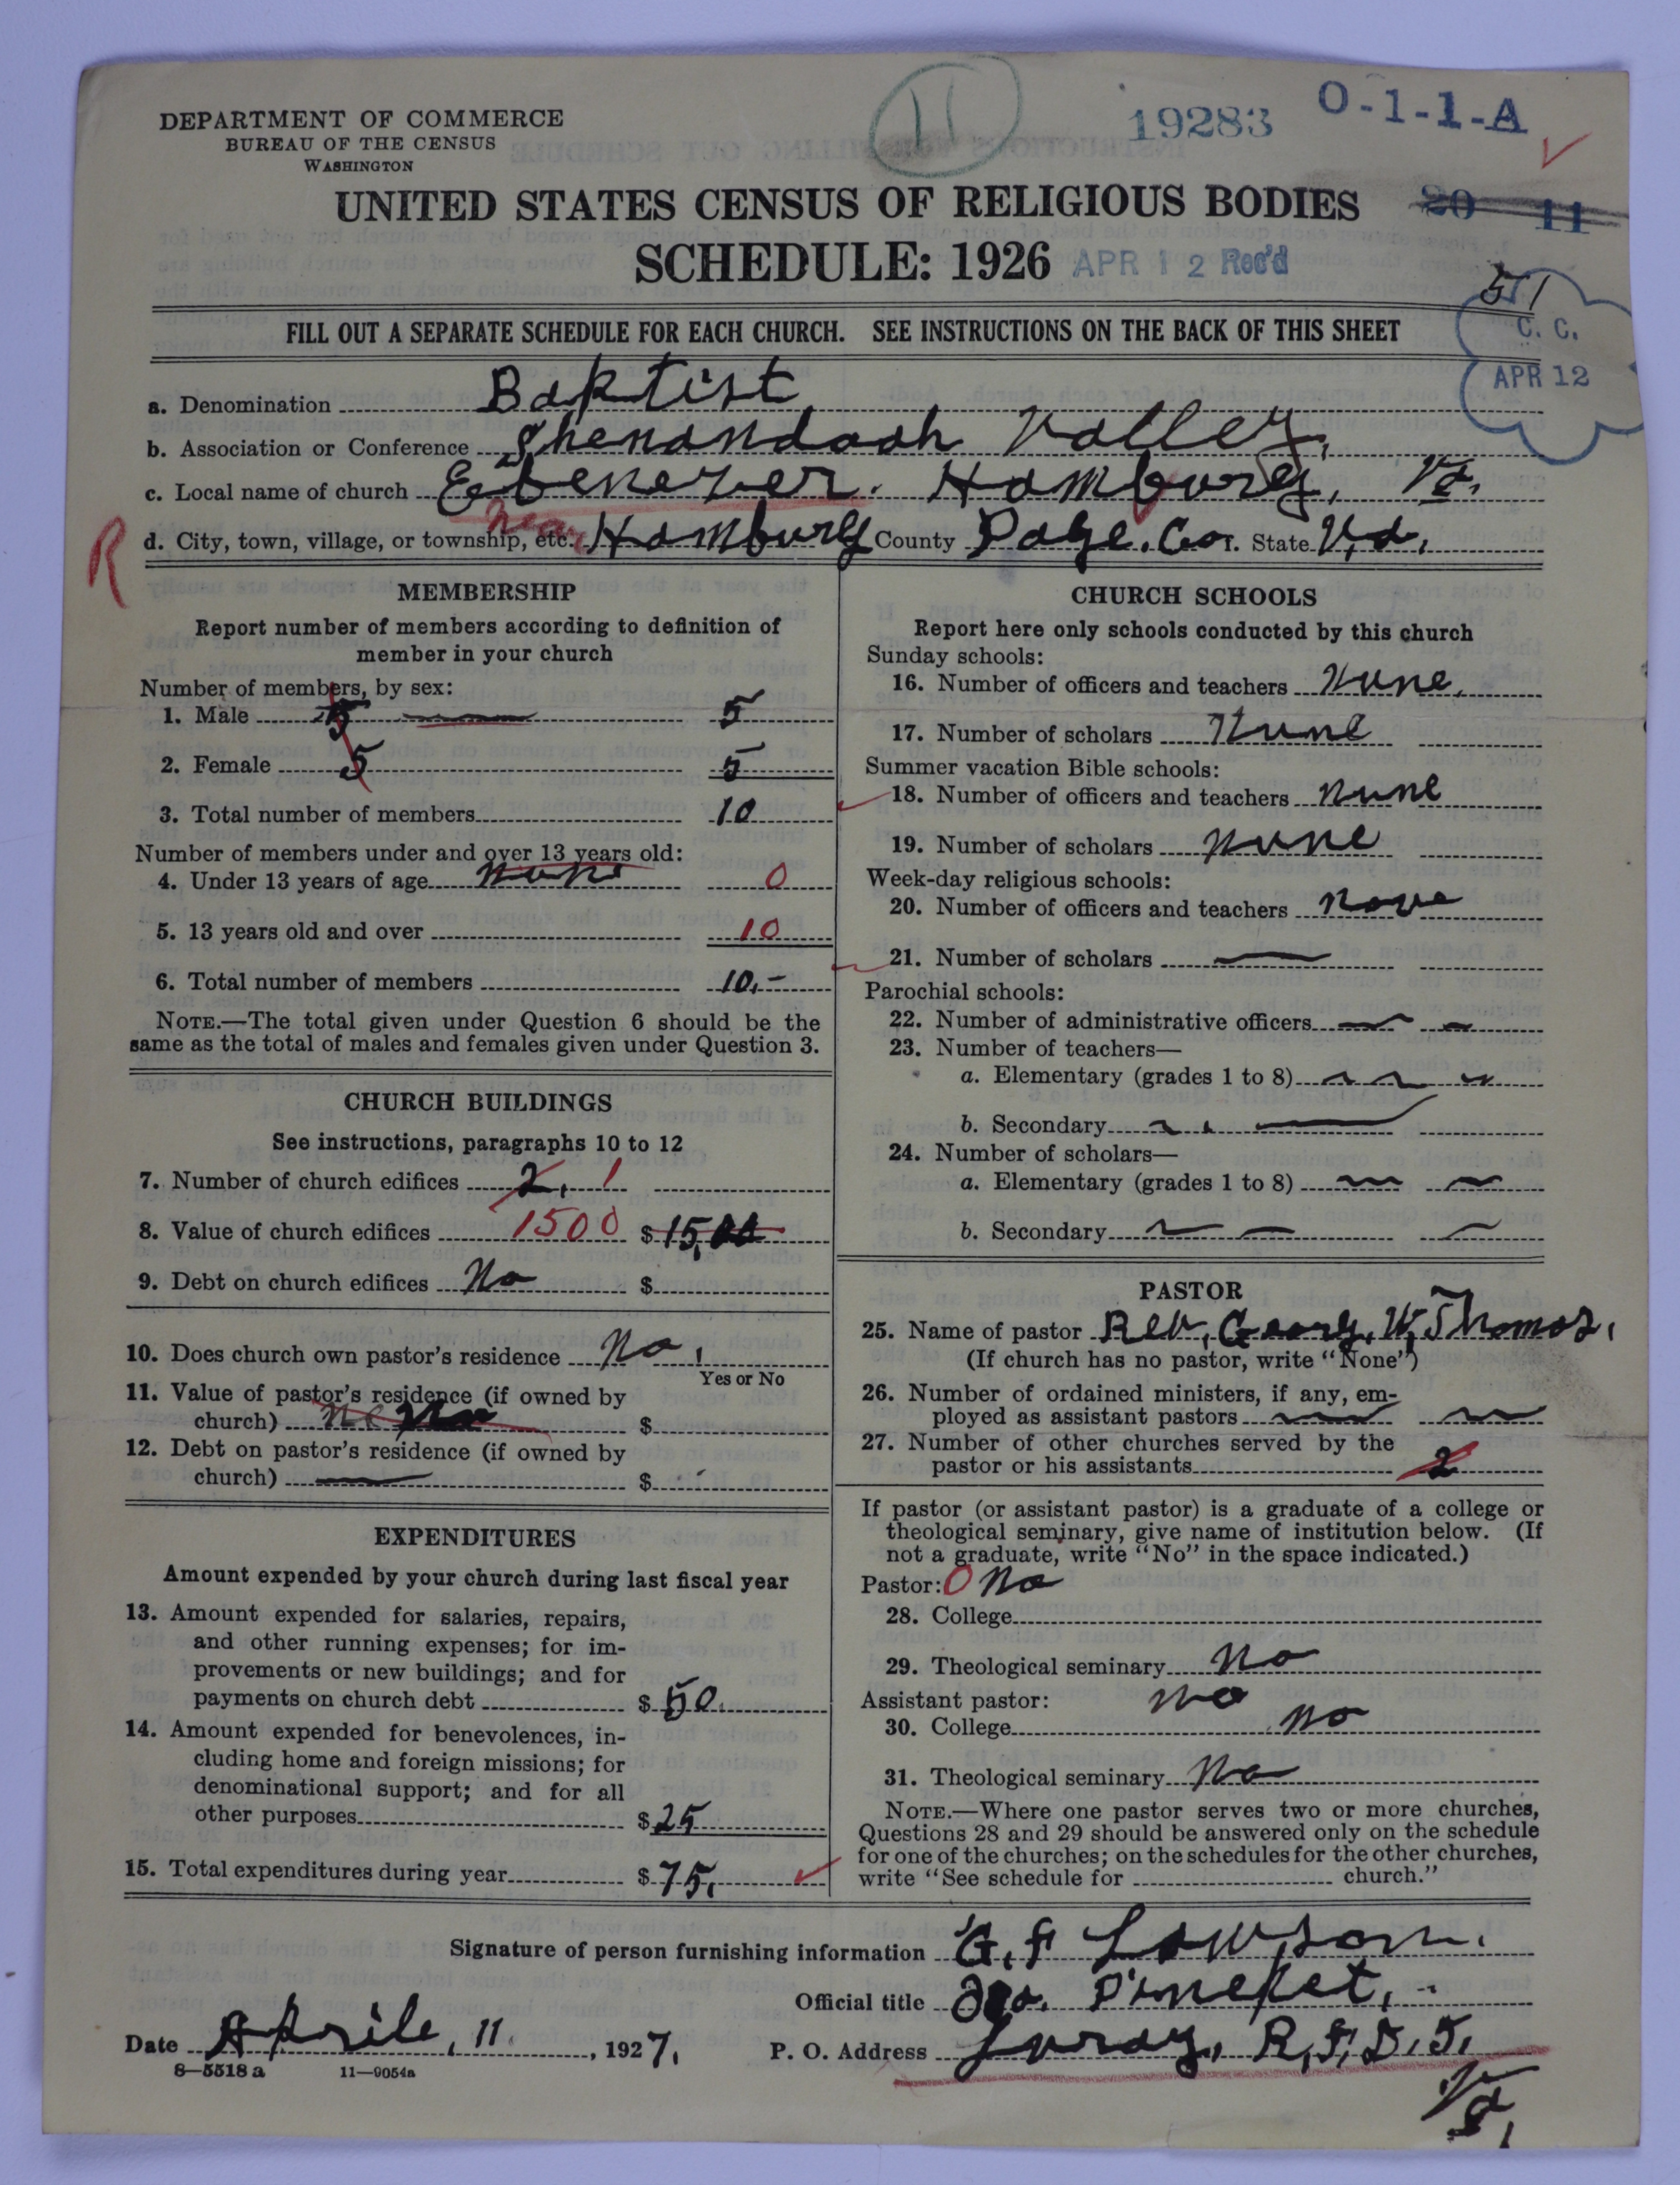 11
19283
O-1-1-A
DEPARTMENT OF COMMERCE
BUREAU OF THE CENSUS
WASHINGTON
UNITED STATES CENSUS OF RELIGIOUS BODIES
20 11
SCHEDULE: 1926 APR 12 Rec'd
51
FILL OUT A SEPARATE SCHEDULE FOR EACH CHURCH. SEE INSTRUCTIONS ON THE BACK OF THIS SHEET
C. C.
APR 12
a. Denomination Baptist
b. Association or Conference Shenandoah Valley,
c. Local name of church Ebenezer. Hamburg, Va.
R
d. City, town, village, or township, etc. near Hamburg County Page. Co. State Va.
MEMBERSHIP
Report number of members according to definition of
member in your church
Number of members, by sex:
1. Male 5 5
2. Female 5 5
3. Total number of members 10
Number of members under and over 13 years old:
4. Under 13 years of age none 0
5. 13 years old and over 10
6. Total number of members 10.-
NOTE.—The total given under Question 6 should be the
same as the total of males and females given under Question 3.
CHURCH BUILDINGS
See instructions, paragraphs 10 to 12
7. Number of church edifices 2. 1
8. Value of church edifices 1500 $ 15,00
9. Debt on church edifices No $
10. Does church own pastor's residence No.
Yes or No
11. Value of pastor's residence (if owned by
church) No $
12. Debt on pastor's residence (if owned by
church) $
EXPENDITURES
Amount expended by your church during last fiscal year
13. Amount expended for salaries, repairs,
and other running expenses; for im-
provements or new buildings; and for
payments on church debt $ 50.
14. Amount expended for benevolences, in-
cluding home and foreign missions; for
denominational support; and for all
other purposes $ 25
15. Total expenditures during year $ 75.
CHURCH SCHOOLS
Report here only schools conducted by this church
Sunday schools:
16. Number of officers and teachers None.
17. Number of scholars None
Summer vacation Bible schools:
18. Number of officers and teachers None
19. Number of scholars None
Week-day religious schools:
20. Number of officers and teachers None
21. Number of scholars
Parochial schools:
22. Number of administrative officers
23. Number of teachers—
a. Elementary (grades 1 to 8)
b. Secondary
24. Number of scholars—
a. Elementary (grades 1 to 8)
b. Secondary
PASTOR
25. Name of pastor Rev. Georg. W. Thomas.
(If church has no pastor, write "None")
26. Number of ordained ministers, if any, em-
ployed as assistant pastors
27. Number of other churches served by the
pastor or his assistants 2
If pastor (or assistant pastor) is a graduate of a college or
theological seminary, give name of institution below. (If
not a graduate, write "No" in the space indicated.)
Pastor: O No
28. College
29. Theological seminary No
Assistant pastor: No
30. College No
31. Theological seminary No
NOTE.—Where one pastor serves two or more churches,
Questions 28 and 29 should be answered only on the schedule
for one of the churches; on the schedules for the other churches,
write "See schedule for church."
Signature of person furnishing information G. F Lawson.
Official title
Date Aprile, 11. , 1927.
P. O. Address Luray, R. F. D. 5.
Va.
8—5518a 11—9054a